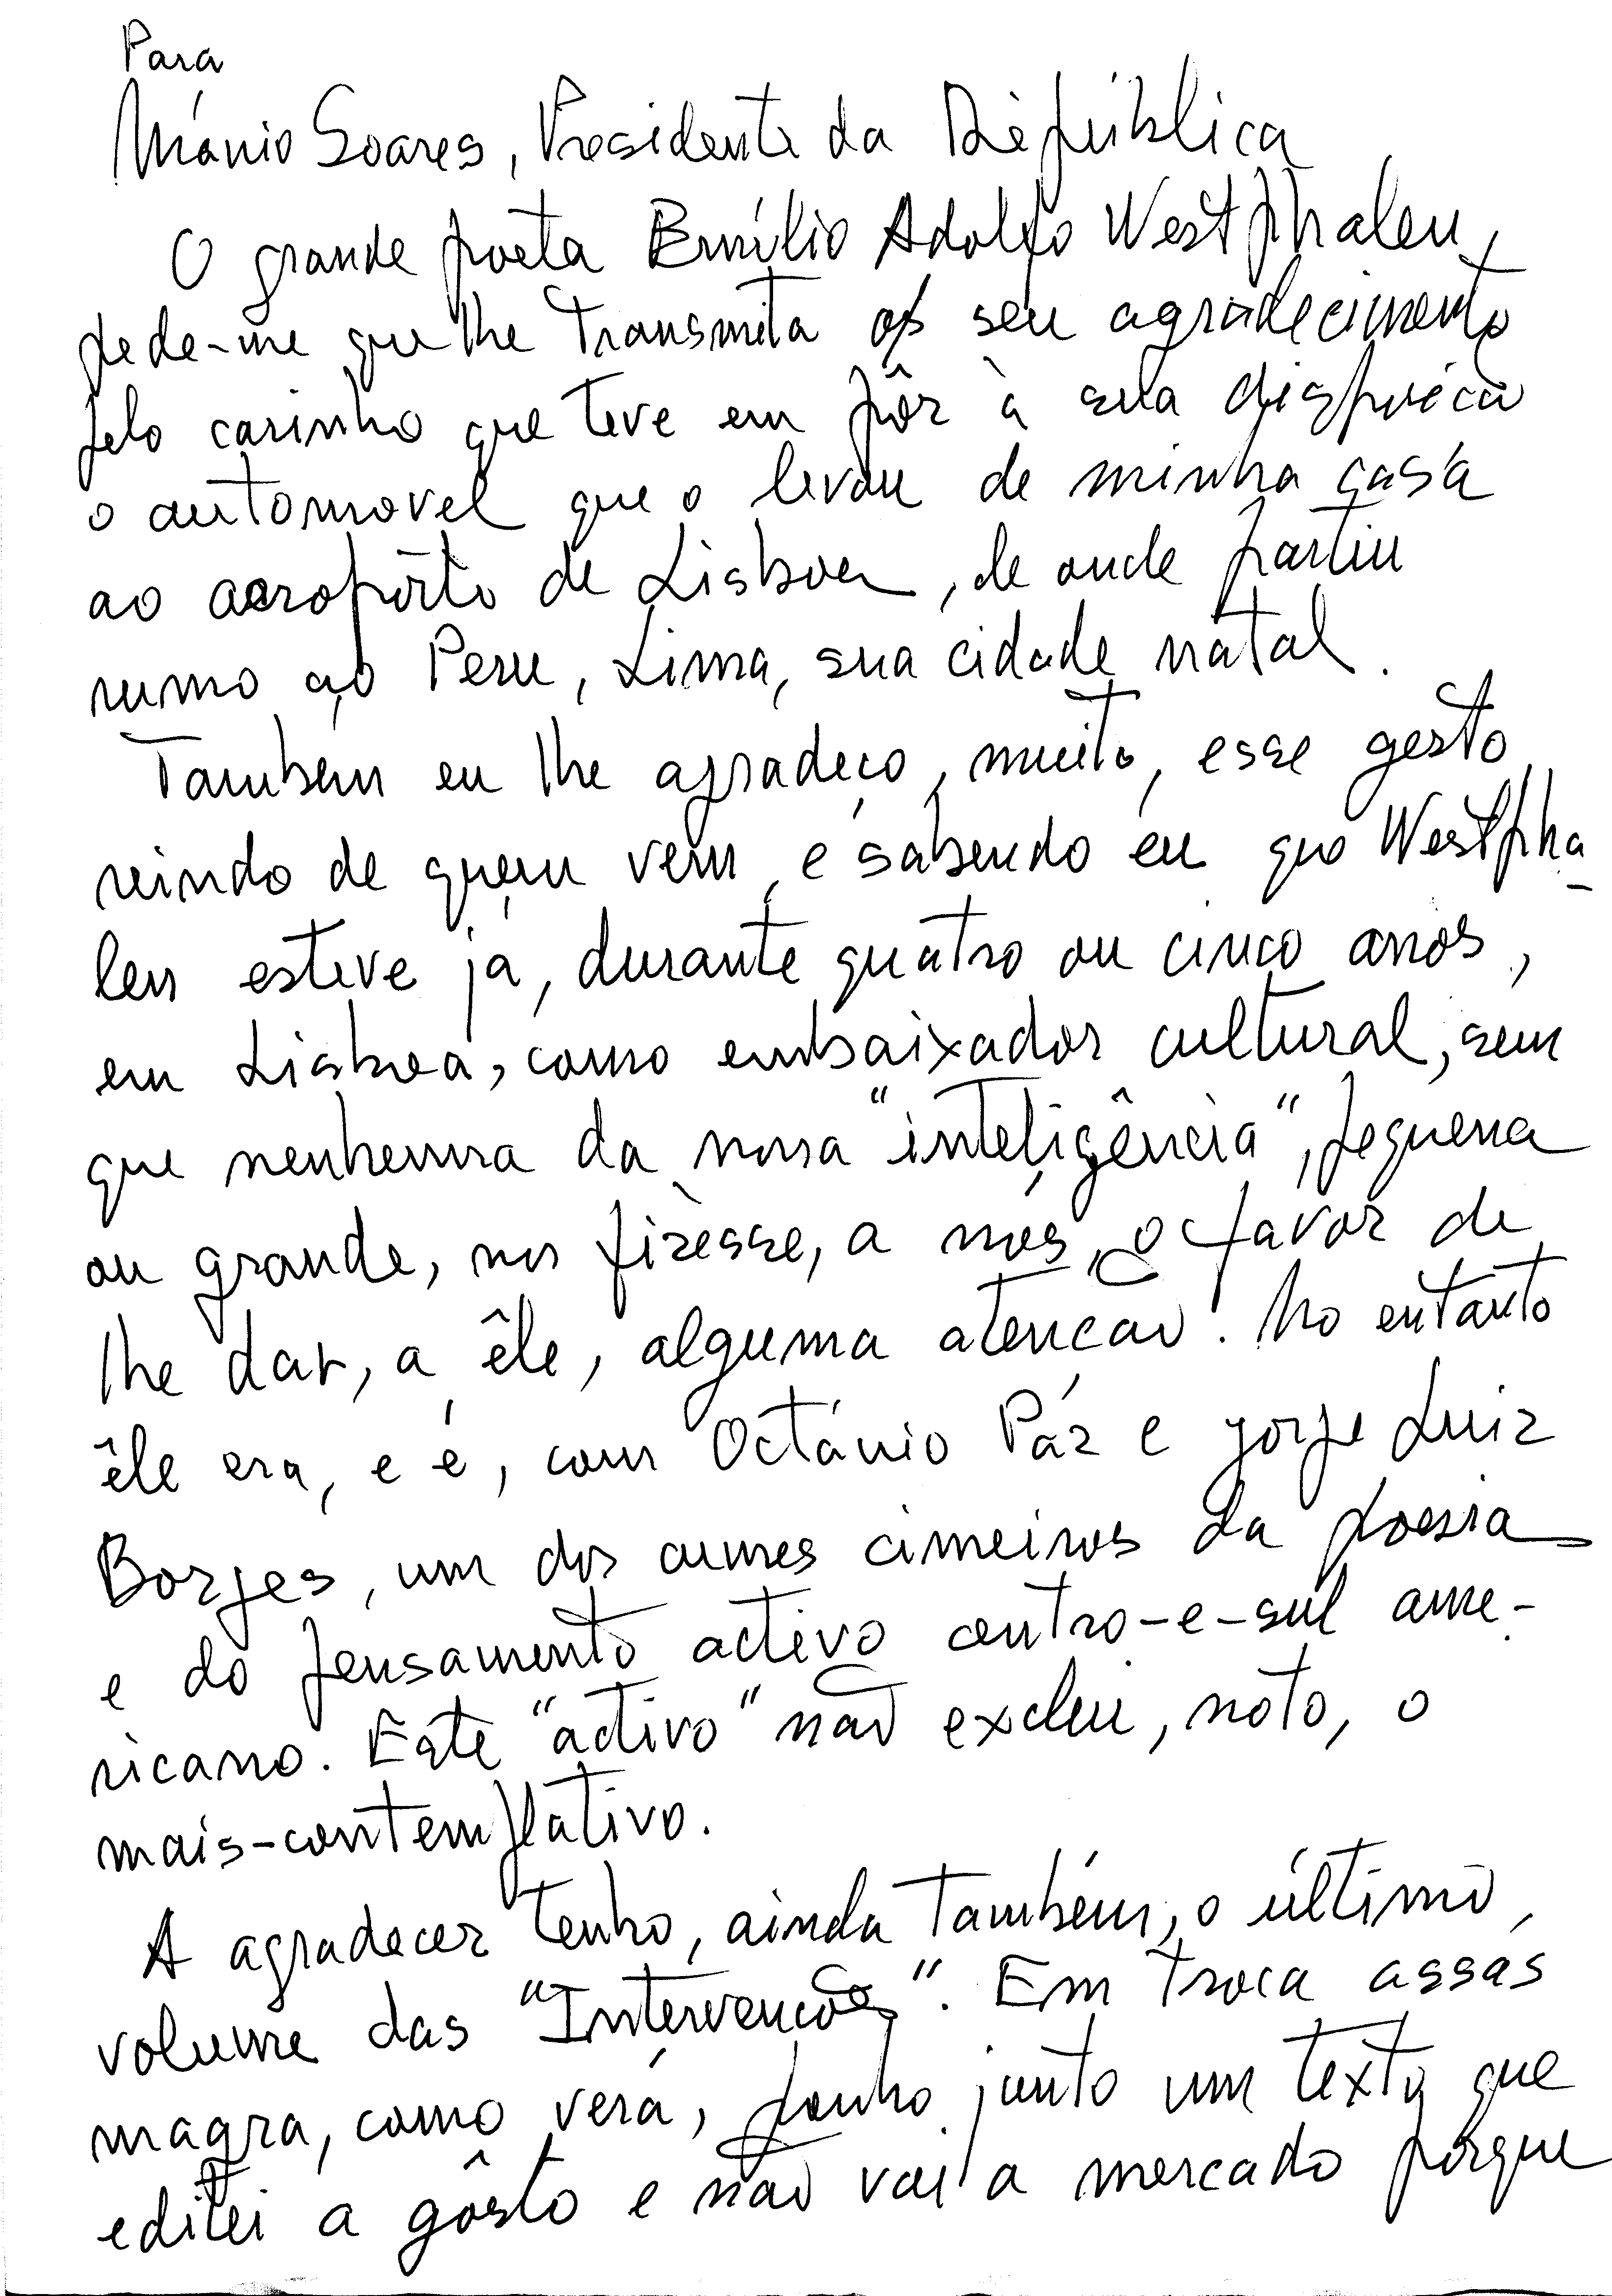 Para
Mário Soares, Presidente da República
O grande poeta Emílio Adolfo Westphalen,
pede-me que lhe transmita o seu agradecimento
pelo carinho que teve em pôr à sua
o automovel que o levou de minha casa
ao aeropôrto de Lisboa, de onde partiu
rumo ao Peru, Lima, sua cidade natal.
Tambem eu lhe agradeço, muito, esse gesto
vindo de quem vem, e sabendo eu que Westpha-
len esteve já, durante quatro ou cinco anos,
em Lisboa, como embaixador cultural, sem
que nenhuma da nossa "inteligência", pequena
ou grande, nos fizesse, a nós, o favor de
lhe dar, a êle, alguma atenção. No entanto
êle era, e é, com Octávio Páz e Jorge Luiz
Borges, um dos cumes cimeiros da poesia
e do pensamento activo centro-e-sul ame-
ricano. Este "activo" não exclui, noto, o
mais-contemplativo.
A agradecer tenho, ainda também, o último
volume das "Intervenções". Em troca assás
magra, como verá, junto um texto que
editei a gôsto e não vai a mercado porque